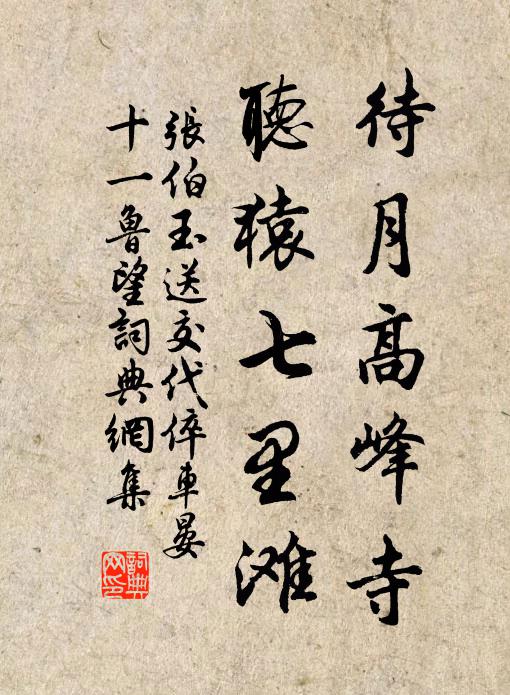 待月高峰寺
聽猿七里滩
張伯玉送交代倅車晏
十一魯望詞典網集
詞典網印